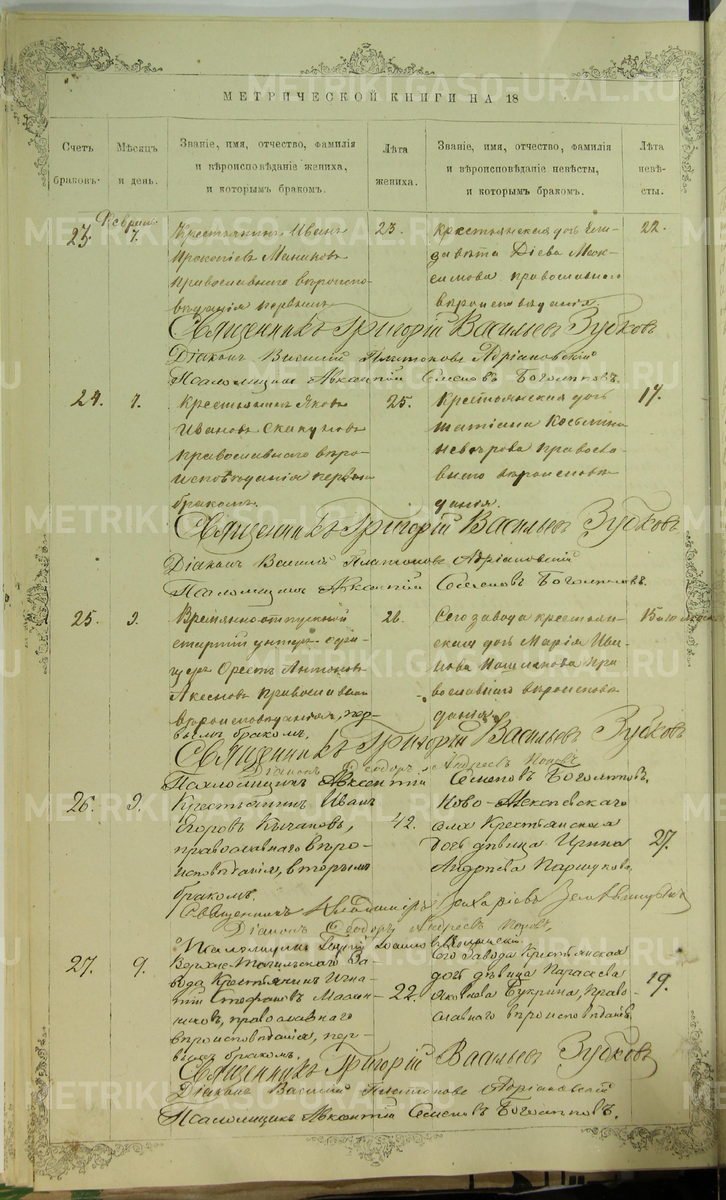 МЕТРИЧЕСКОЙ КНИГИ НА 18
Счетъ браковъ.
Мѣсяцъ и день.
Званіе, имя, отчество, фамилія
и вѣроисповѣданіе жениха,
и которымъ бракомъ.
Лѣта жениха.
Званіе, имя, отчество, фамилія
и вѣроисповѣданіе невѣсты,
и которымъ бракомъ.
Лѣта невѣ-
сты.
23.
7.
Крестьянинъ Иванъ
Прокопіевъ
православнаго вѣроиспо-
вѣданія первымъ
23.
Крестьянская дочь Ели-
завета Діева Мак-
симова православнаго
вѣроисповѣданія.
22.
Священникъ Григорій Васильевъ Зубковъ
Діаконъ Василій Платоновъ Адріановскій
Псаломщикъ Авксентій Семеновъ Боголѣповъ.
24.
7.
Крестьянинъ Яковъ
Ивановъ Скакуновъ
православнаго вѣро-
исповѣданія первымъ
бракомъ.
25.
Крестьянская дочь
Татіана Косьмина
православ-
наго вѣроисповѣ-
данія.
17.
Священникъ Григорій Васильевъ Зубковъ
Діаконъ Василій Платоновъ Адріановскій
Псаломщикъ Авксентій Семеновъ Боголѣповъ.
25.
9.
Временно отпускный
старшій унтеръ-офи-
церъ Орестъ Антоновъ
православнаго
вѣроисповѣданія, пер-
вымъ бракомъ.
26.
Сего завода крестьян-
ская дочь Марія Ива-
нова пра-
вославнаго вѣроисповѣ-
данія
15
Священникъ Григорій Васильевъ Зубковъ
Діаконъ Ѳеодоръ Андреевъ Поповъ
Псаломщикъ Авксентій Семеновъ Боголѣповъ.
26.
9.
Крестьянинъ Иванъ
Егоровъ
православнаго вѣро-
исповѣданія, вторымъ
бракомъ.
42.
Ново-Алексѣевскаго
села Крестьянская
дочь дѣвица Ирина
Андреева Паршукова
27.
Священникъ Владиміръ Захаріевъ
Діаконъ Ѳеодоръ Андреевъ Поповъ,
Псаломщикъ
27.
9.
Верхне-Тагильскаго За-
вода Крестьянинъ Игна-
тій Стефановъ Маслен-
никовъ, православнаго
вѣроисповѣданія, пер-
вымъ бракомъ.
22.
Сего Завода Крестьянская
дочь дѣвица Параскева
Яковлева Букрина, право-
славнаго вѣроисповѣданія
19.
Священникъ Григорій Васильевъ Зубковъ
Діаконъ Василій Платоновъ Адріановскій
Псаломщикъ Авксентій Семеновъ Боголѣповъ.